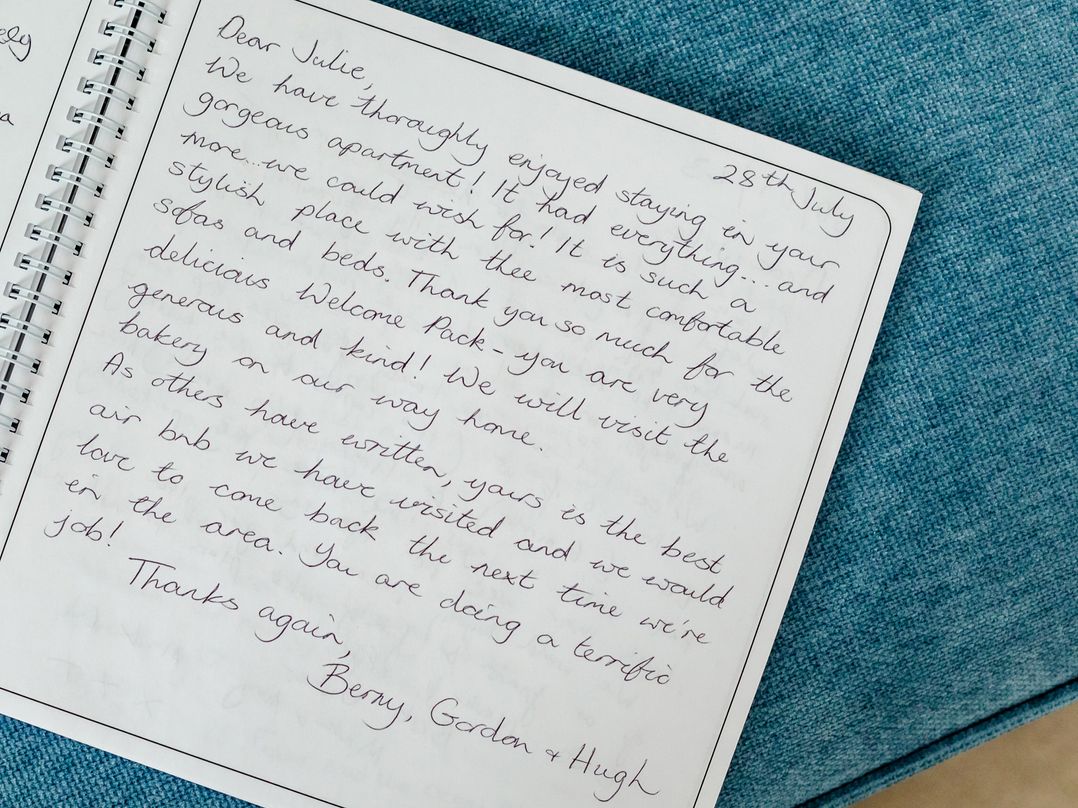 ely
a
28th July
Dear Julie,
We have thoroughly enjoyed staying in your
gorgeous apartment! It had everything...and
more...we could wish for! It is such a
stylish place with thee most comfortable
sofas and beds. Thank you so much for the
delicious Welcome Pack - you are very
generous and kind! We will visit the
bakery on our way home.
As others have written, yours is the best
air bnb we have visited and we would
love to come back the next time we're
in the area. You are doing a terrific
job!
Thanks again,
Berny, Gordon & Hugh